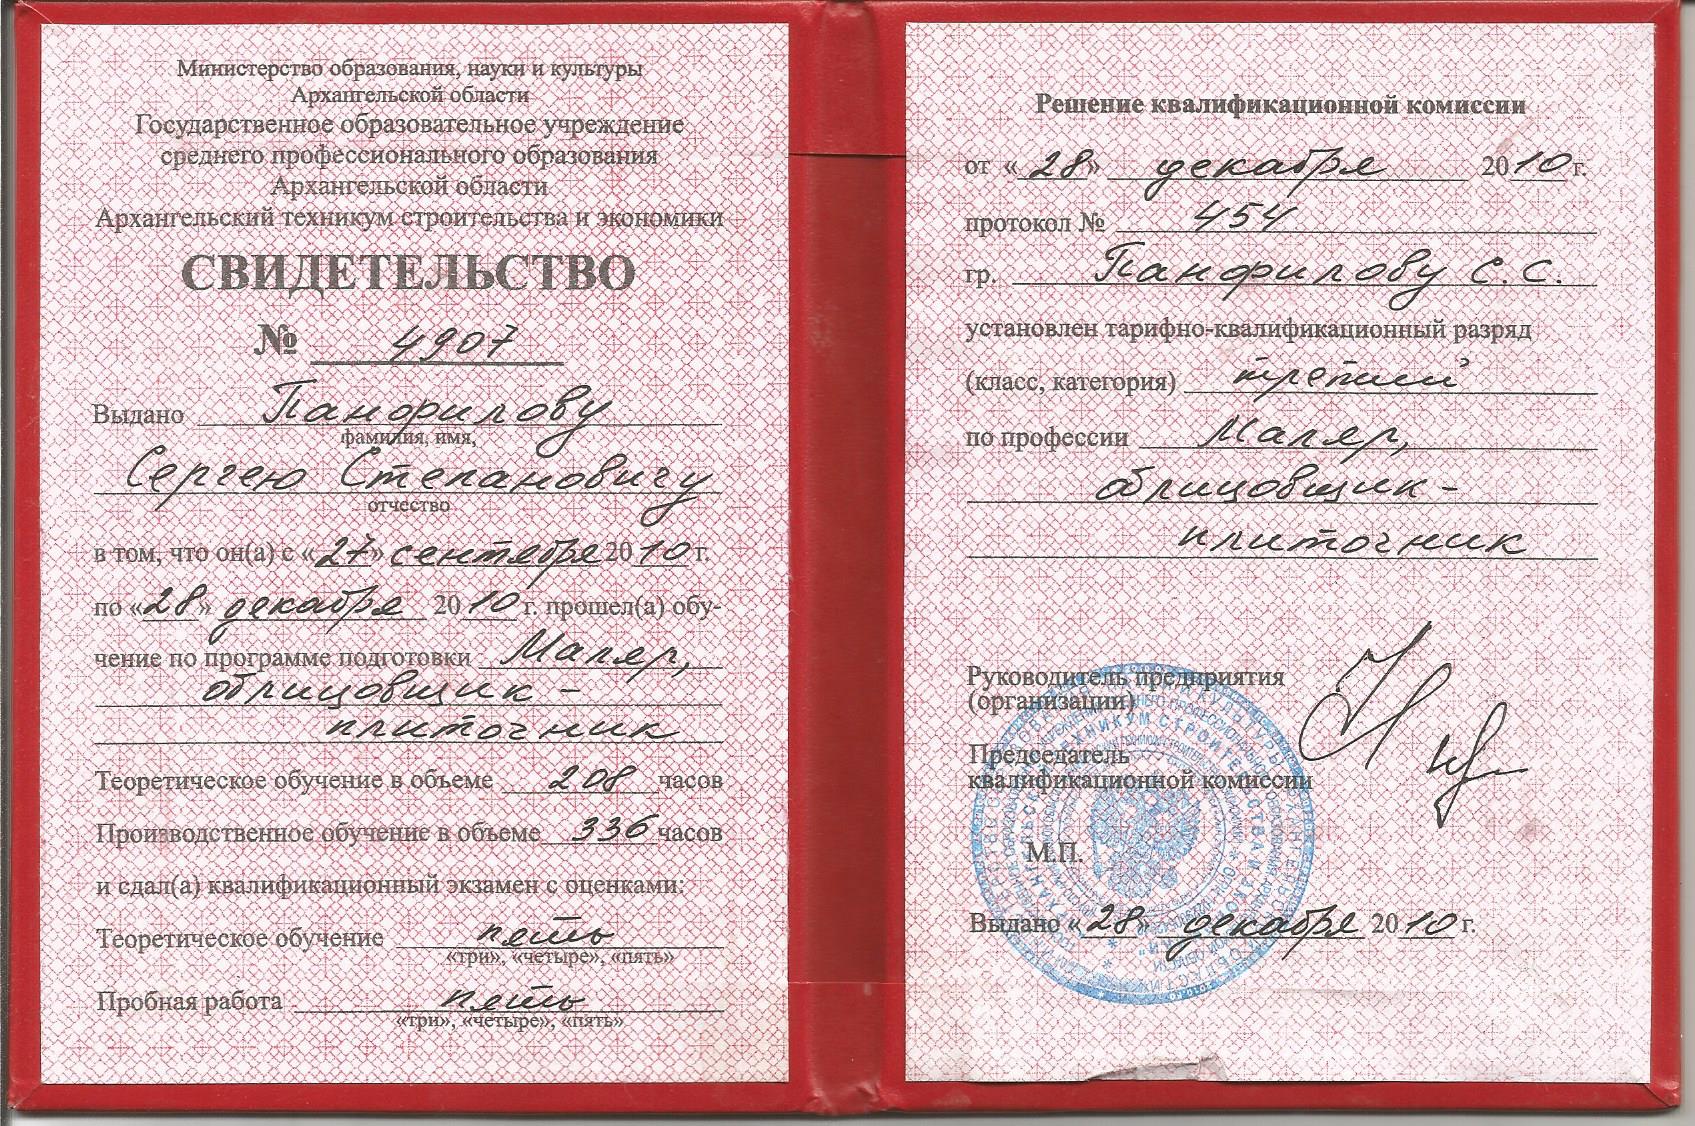 Министерство образования, науки и культуры
Архангельской области
Государственное образовательное учреждение
среднего профессионального образования
Архангельской области
Архангельский техникум строительства и экономики
СВИДЕТЕЛЬСТВО
№ 4907
Выдано Панфилову
фамилия, имя,
Сергею Степановичу
отчество
в том, что он(а) с «27» сентября 2010 г.
по «28» декабря 2010 г. прошел(а) обу-
чение по программе подготовки Маляр,
облицовщик-
плиточник
Теоретическое обучение в объеме 208 часов
Производственное обучение в объеме 336 часов
и сдал(а) квалификационный экзамен с оценками:
Теоретическое обучение пять
«три», «четыре», «пять»
Пробная работа пять
«три», «четыре», «пять»
Решение квалификационной комиссии
от «28» декабря 2010 г.
протокол № 454
гр. Панфилову С.С.
установлен тарифно-квалификационный разряд
(класс, категория) третий
по профессии Маляр,
облицовщик-
плиточник
Руководитель предприятия
(организации)
Председатель
квалификационной комиссии
М.П.
Выдано «28» декабря 2010 г.